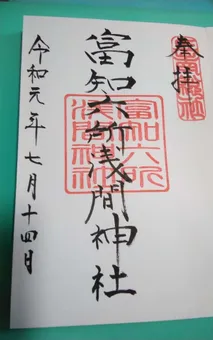 奉拝
富知六所浅間神社
富知六所
浅間神社
令和元年七月十四日